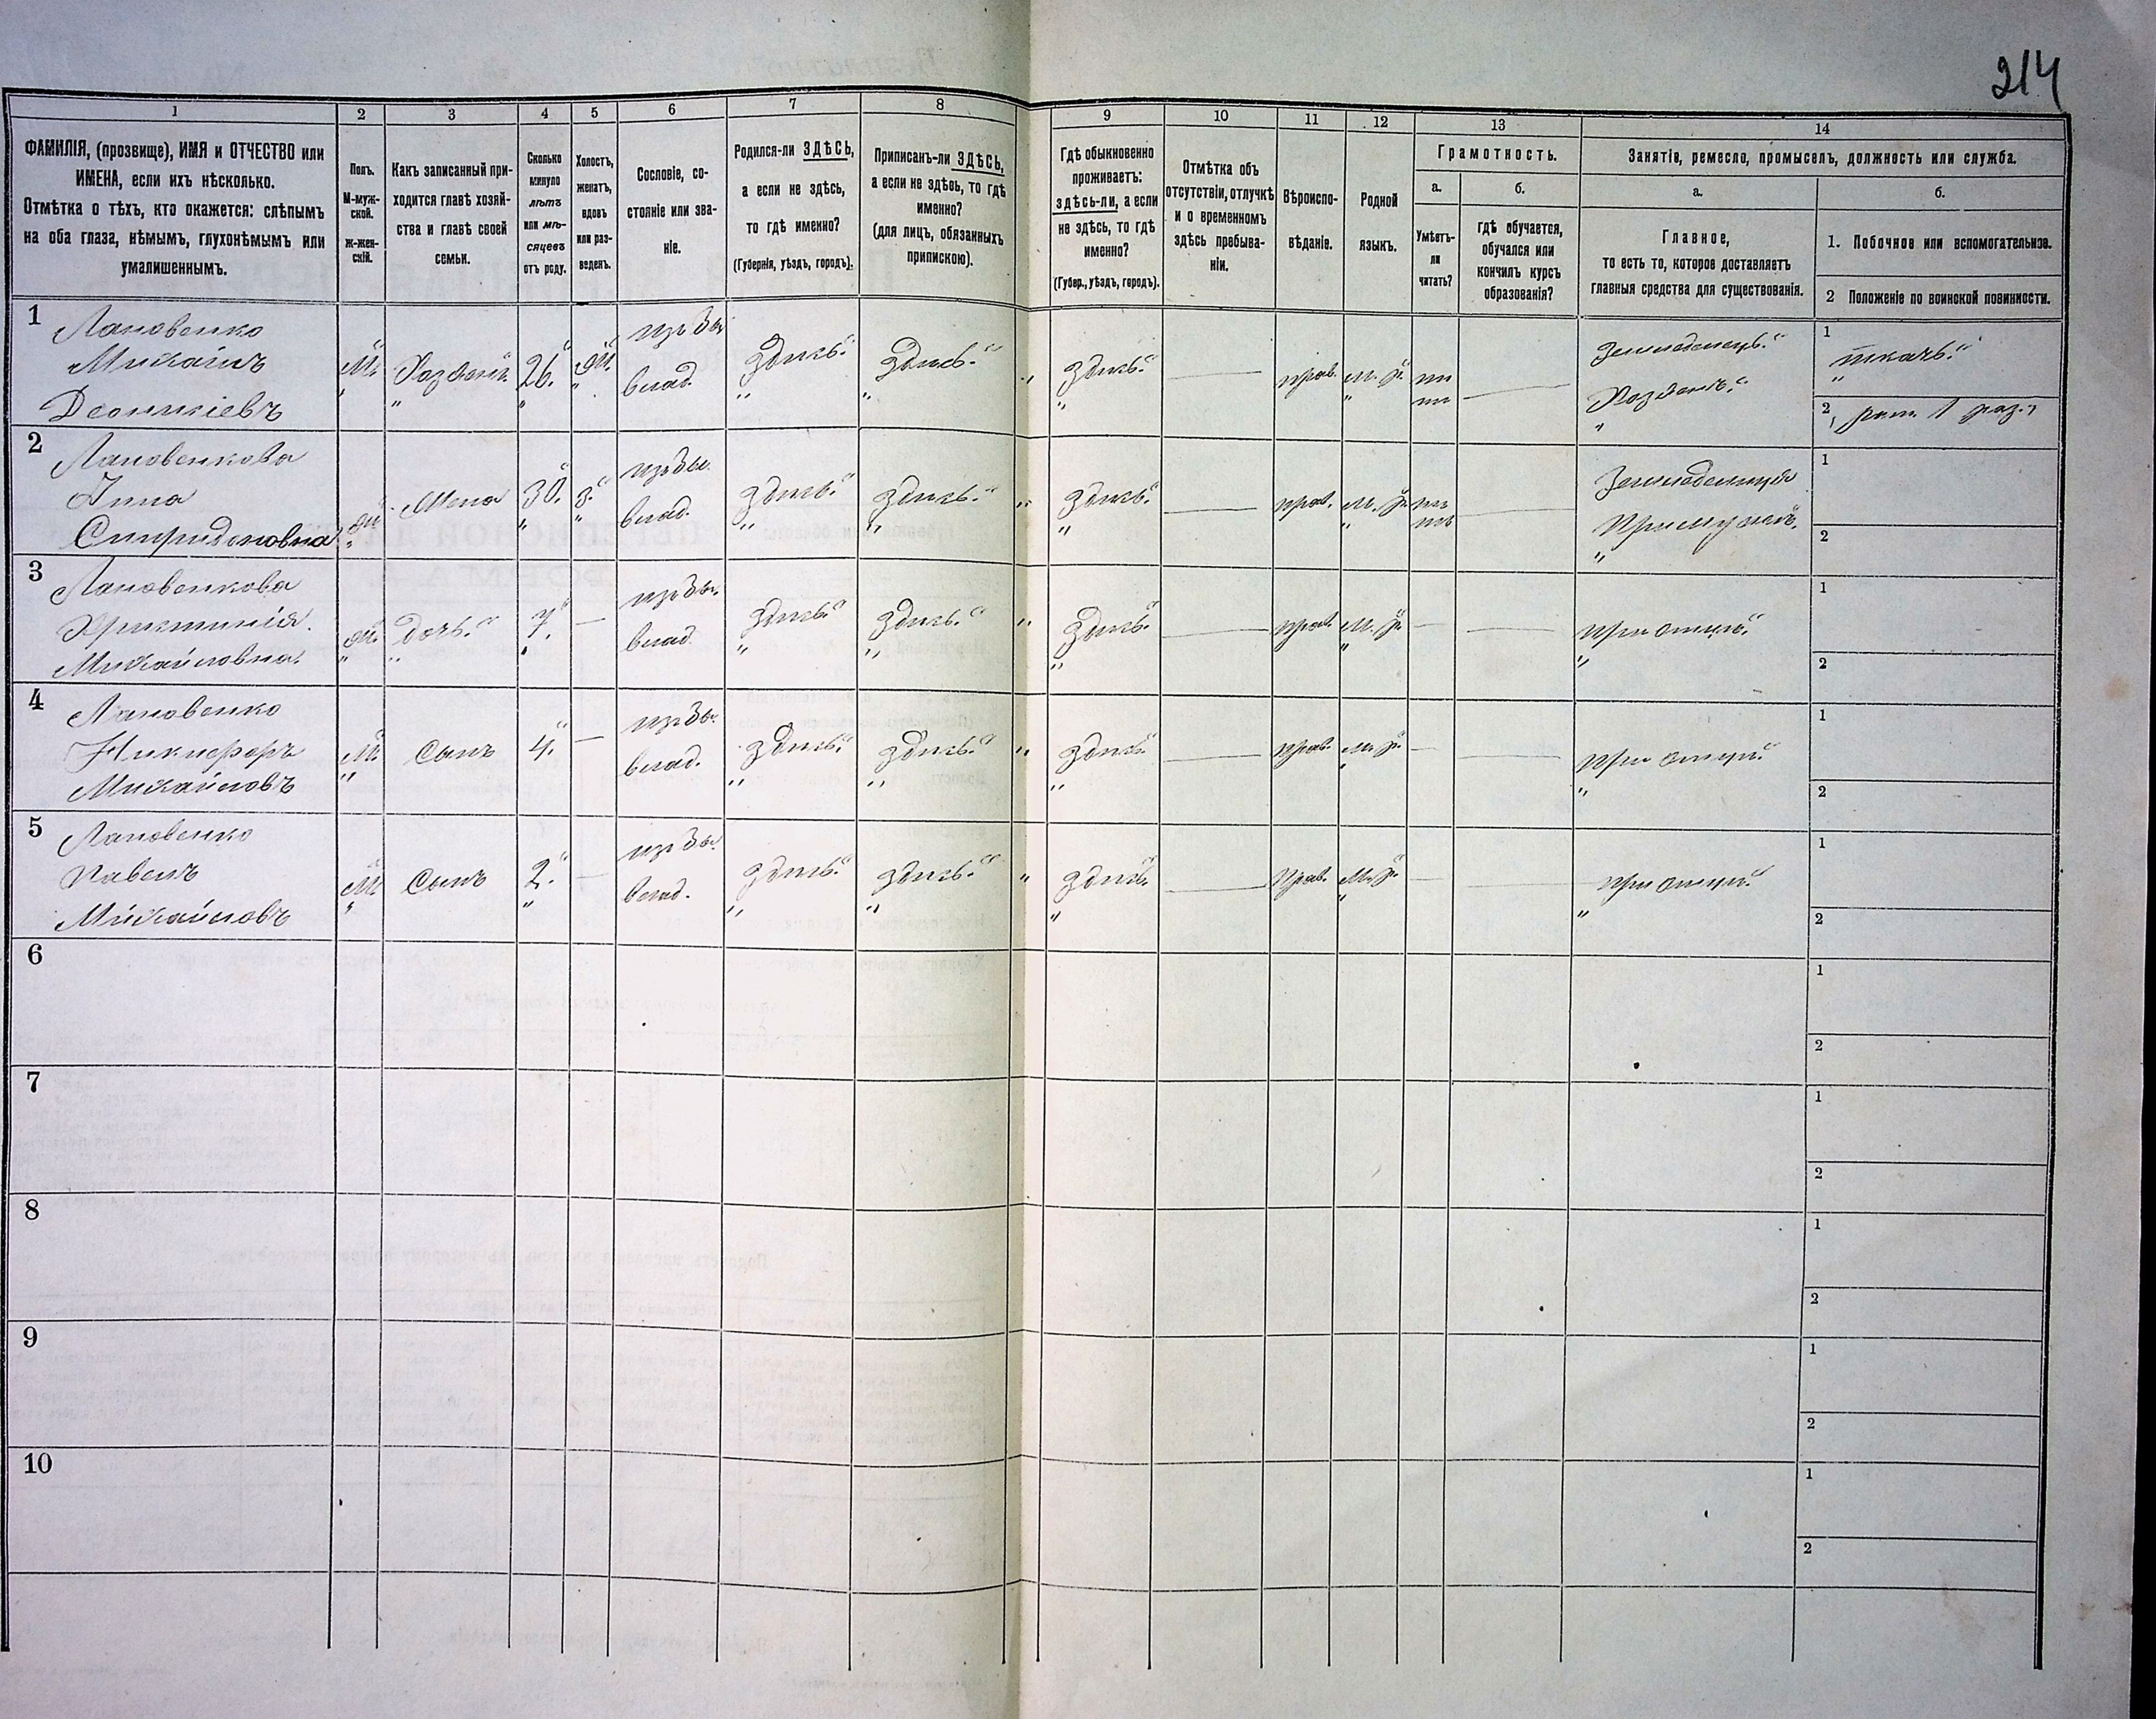 214
1 2 3 4 5 6 7 8 9 10 11 12 13 14
ФАМИЛІЯ, (прозвище), ИМЯ и ОТЧЕСТВО или
ИМЕНА, если ихъ нѣсколько.
Отмѣтка о тѣхъ, кто окажется: слѣпымъ
на оба глаза, нѣмымъ, глухонѣмымъ или
умалишеннымъ.
Полъ.
М-муж-
ской.
ж-жен-
скій.
Какъ записанный при-
ходится главѣ хозяй-
ства и главѣ своей
семьи.
Сколько
минуло
лѣтъ
или мѣ-
сяцевъ
отъ роду.
Холостъ,
женатъ,
вдовъ
или раз-
веденъ.
Сословіе, со-
стояніе или зва-
ніе.
Родился-ли ЗДѢСЬ,
а если не здѣсь,
то гдѣ именно?
(Губернія, уѣздъ, городъ).
Приписанъ-ли ЗДѢСЬ,
а если не здѣсь, то гдѣ
именно?
(для лицъ, обязанныхъ
припискою).
Гдѣ обыкновенно
проживаетъ:
здѣсь-ли, а если
не здѣсь, то гдѣ
именно?
(Губер., уѣздъ, городъ).
Отмѣтка объ
отсутствіи, отлучкѣ
и о временномъ
здѣсь пребыва-
ніи.
Вѣроиспо-
вѣданіе.
Родной
языкъ.
Грамотность.
а.
Умѣетъ-
ли
читать?
б.
гдѣ обучается,
обучался или
кончилъ курсъ
образованія?
Занятіе, ремесло, промыселъ, должность или служба.
а.
Главное,
то есть то, которое доставляетъ
главныя средства для существованія.
б.
1. Побочное или вспомогательное.
2 Положеніе по воинской повинности.
1
Лановенко
Михаилъ
Деонисіевъ
М. Хозяинъ 26. Ж. изъ Вл. влад. здѣсь. здѣсь. здѣсь. прав. м. р. нѣтъ
Земледелецъ.
Хозяинъ.
1 ткачъ.
2 рат. 1 раз.
2
Лановенкова
Анна
Спиридоновна
ж. Жена 30. з. влад. здѣсь. здѣсь. здѣсь. прав. м. р. нѣтъ
Земледелица
1
2
3
Лановенкова
Христинія
Михайловна.
ж. дочь. 7. — влад. здѣсь. здѣсь. здѣсь. прав. м. р. —
при отцѣ.
1
2
4
Лановенко
Никифоръ
Михайловъ
М. Сынъ 4. — влад. здѣсь. здѣсь. здѣсь. прав. м. р. —
при отцѣ.
1
2
5
Лановенко
Павелъ
Михайловъ
М. Сынъ 2. — влад. здѣсь. здѣсь. здѣсь. прав. м. р. —
при отцѣ.
1
2
6
1
2
7
1
2
8
1
2
9
1
2
10
1
2